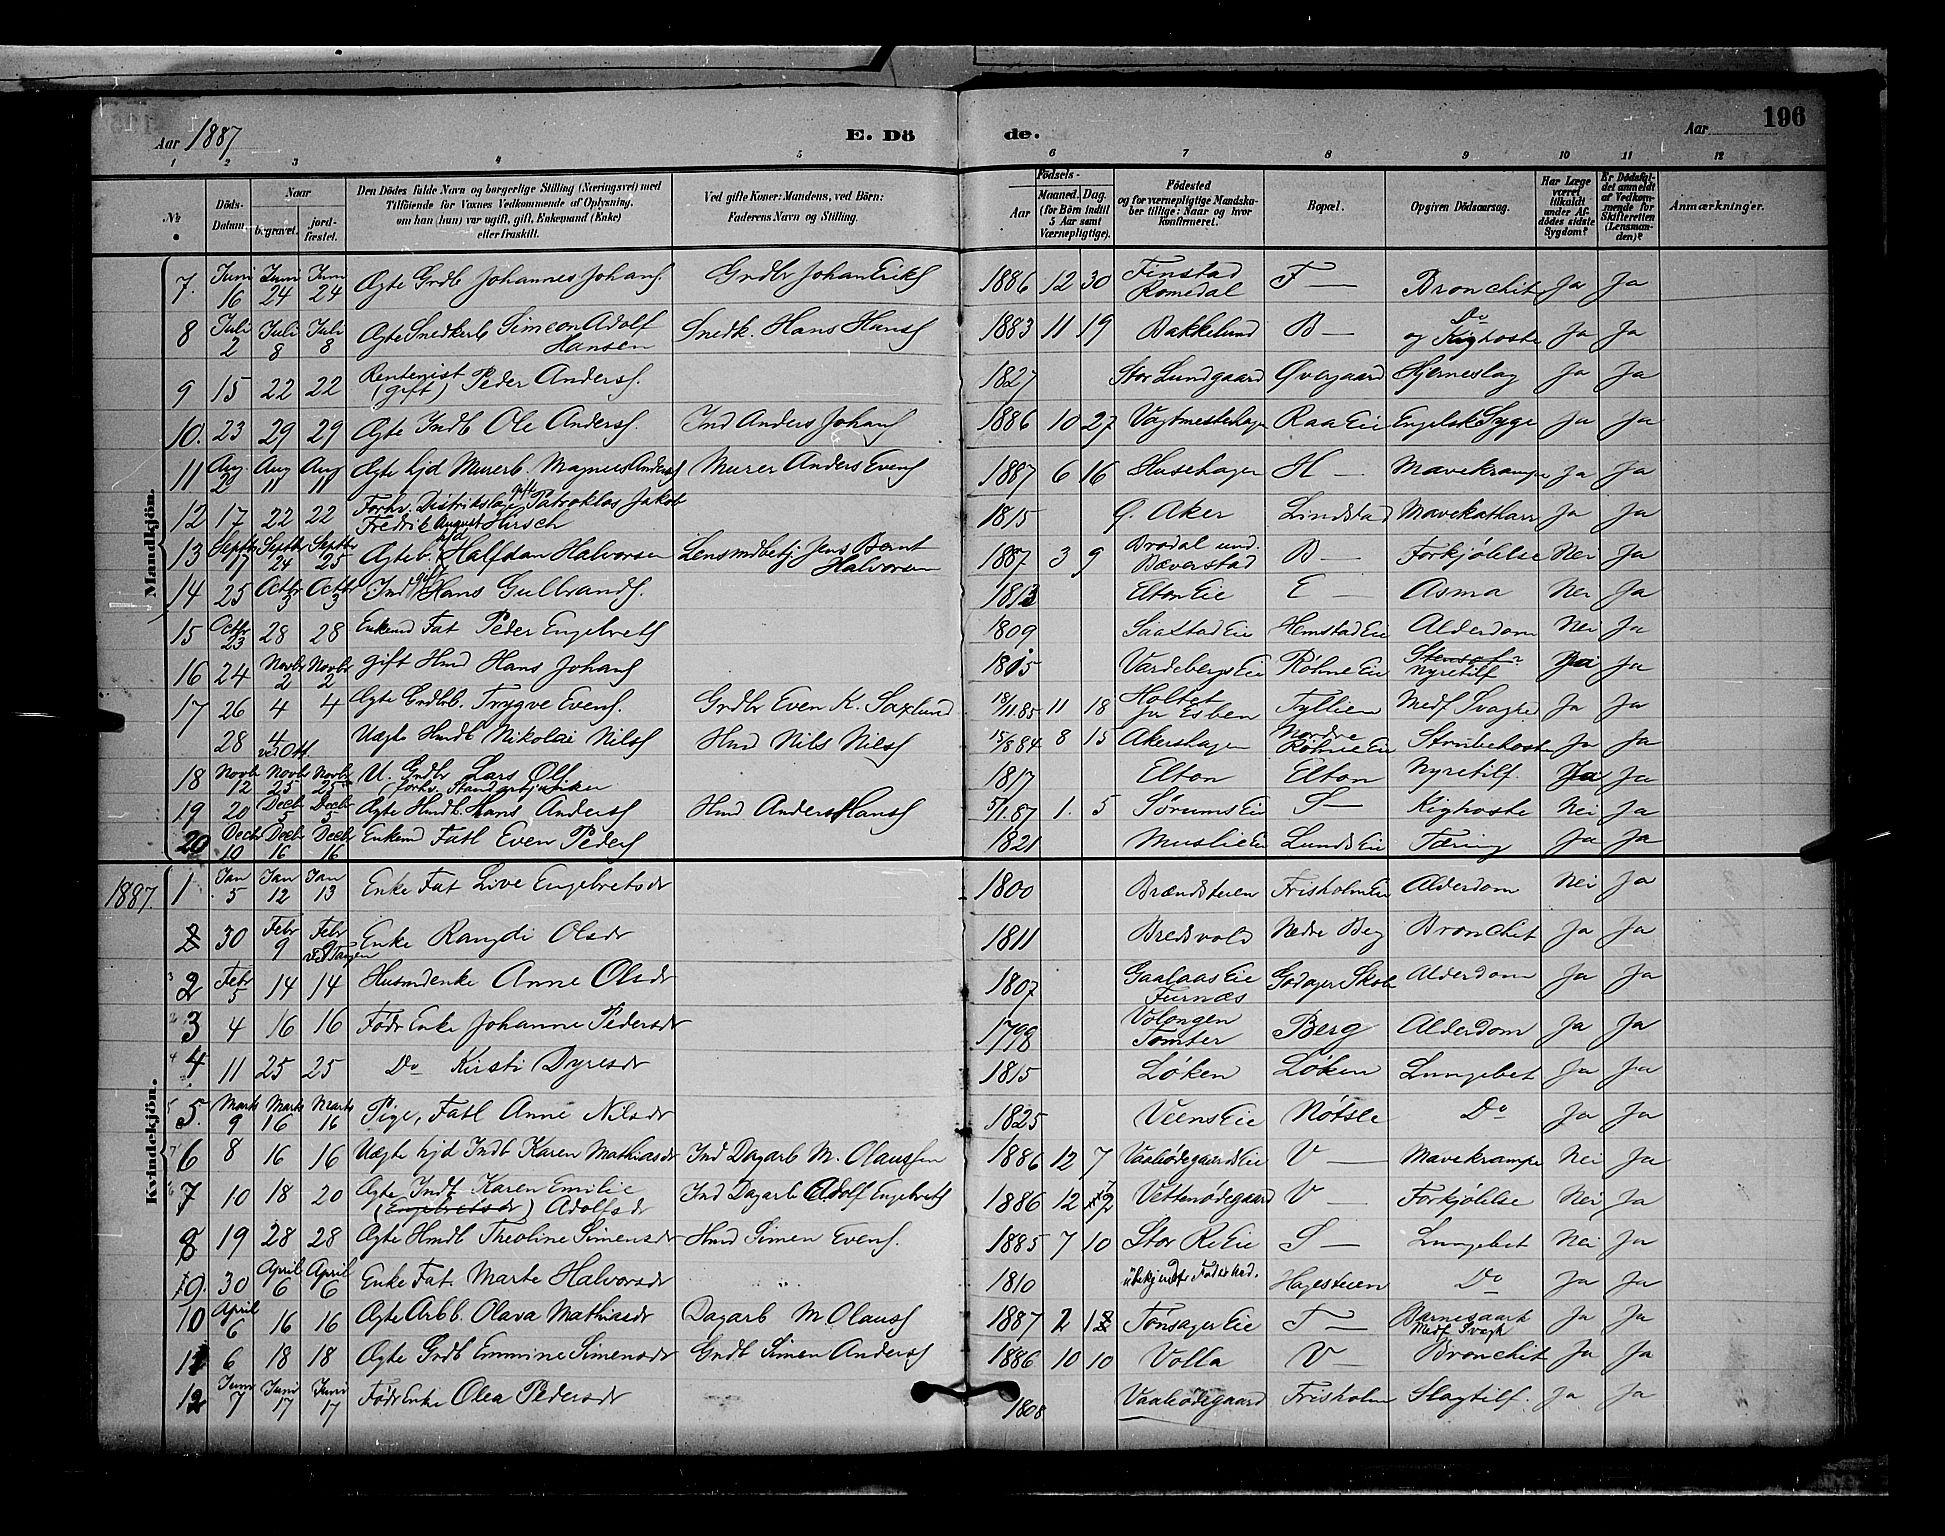 Aar 1887
E. Dö
de.
Aar
196
1 2 3 4 5 6 7 8 9 10 11 12
№
Döds-Datum.
Naar
begravet.
jord-fæstet.
Den Dödes fulde Navn og borgerlige Stilling (Næringsvei) med
Tilföiende for Voxnes Vedkommende af Oplysning,
om han (hun) var ugift, gift, Enkemand (Enke)
eller fraskilt.
Ved gifte Koner: Mandens, ved Börn:
Faderens Navn og Stilling.
Födsels-
Aar
Maaned. Dag.
(for Börn indtil
5 Aar samt
Værnepligtige).
Födested
og for værnepligtige Mandska-
ber tillige: Naar og hvor
konfirmeret.
Bopæl.
Opgiven Dödsaarsag.
Har Læge
været
tilkaldt
under Af-
dödes sidste
Sygdom?
Er Dödsfal-
det anmeldt
af Vedkom-
mende for
Skifteretten
(Lensman-
den)?
Anmærkninger.
Mandkjön.
7. Juni 16 Juni 24 Juni 24 Ægte Grdb Johannes Johans. Grdbr Johan Eriks 1886 12 30 Finstad Romedal F — Bronchit Ja Ja
8 Juli 2 Juli 8 Juli 8 Ægte Snedkerb Simeon Adolf Hansen Snedk. Hans Hans 1883 11 19 Bakkelund B — Do og Kighoste Ja Ja
9 15 22 22 Rentenist (gift) Peder Anders. 1827 Stor Lundgaard Øvergaard Hjerneslag Ja Ja
10. 23 29 29 Ægte Indb Ole Anders. Ind Anders Johans 1886 10 27 Vagtmesterhagen Raa Eie Engelsk Syge Ja Ja
11 Aug 2 Aug 11 Aug 11 Ægte hjd Murerb. Magnus Anders Murer Anders Evens 1887 6 16 Husehagen H — Mavekrampe Ja Ja
12 17 22 22 Forhv. Distriktslæge gift Patroklos Jakob Fredrik August Hirsch 1815 Ø. Aker Lindstad Mavekatharr Ja Ja
13 Septbr 17 Septbr 24 Septbr 25 Ægte b. hjd Halfdan Halvorsen Lensmdbetj. Jens Bernt Halvorsen 1887 3 9 Brodal und. Bæverstad B — Forkjølelse Nei Ja
14 25 Octbr 3 Octbr 3 Ind gift Hans Gulbrands. 1813 Elton Eie E — Asma Nei Ja
15 Octbr 23 28 28 Enkemd Fat Peder Engebrets 1809 Saastad Eie Hemstad Eie Alderdom Nei Ja
16 24 Novbr 2 Novbr 2 gift Hmd Hans Johans 1815 Vardebergs Eie Røhne Eie Nyretilf Ja Ja
17 26 4 4 Ægte Grdbrb. Trygve Evens. Grdbr Even K. Saxlund 18/11.85 11 18 Holtet Esben Tyllien Medf Svaghed Ja Ja
28 4 ved Ott Uægte Hmdb Nikolai Nils Hmd Nils Nils 15/8 84 8 15 Akershagen Nordre Røhne Eie Strubehoste Ja Ja
18 Novbr 12 Novbr 25 Novbr 25 U. Grdbr Lars Ols (forhv. Standartjunker 1817 Elton Elton Nyretilf. Ja Ja
19 20 Decbr 5 Decbr 5 Ægte Hmdb. Hans Anders Hmd Anders Hans 5/1.87 1. 5 Sørums Eie S — Kighoste Nei Ja
20 Decbr 10 Decbr 16 Decbr 16 Enkemd Fatl Even Peders 1821 Muslie Eie Lunds Eie Tæring Ja Ja
Kvindekjön.
1887. 1 Jan 5 Jan 12 Jan 13 Enke Fat Live Engebretsdr 1800 Brændsteien Frisholm Eie Alderdom Nei Ja
2 30 Febr 9 Febr 9 v. Tangen Enke Rangdi Olsdr 1811 Bredsvold Nedre Beg Bronchit Ja Ja
3 2 Febr 5 14 14 Husmdenke Anne Olsdr 1807 Gaalaas Eie Furnæs Godager Skole Alderdom Ja Ja
2 3 4 16 16 Fødr Enke Johanne Pedersdr 1798 Volengen Tomter Berg Alderdom Ja Ja
4 4 11 25 25 Do Kirsti Dyresdr 1815 Løken Løken Lungebet Ja Ja
5 5. Marts 9 Marts 16 Marts 16 Pige, Fatl Anne Nilsdr 1825 Veens Eie Nøtsle Do Ja Ja
7 6 8 16 16 Uægte hjd Indb Karen Mathiasdr Ind Dagarb M. Olaussen 1886 12 7 Vaaleødegaards Eie V — Mavekrampe Nei Ja
6 7 10 18 20 Ægte Indb Karen Emilie (Engebretsdr) Adolfsdr Ind Dagarb Adolf Engebrets 1886 12 Vettenødegaard V — Forkjølelse Nei Ja
8 19 28 28 Ægte Hmdb Theoline Simensdr Hmd Simen Evens. 1885 7 10 Stor Re Eie S — Lungebet Nei Ja
9. 30 April 6 April 6 Enke Fat. Marte Halvorsdr „ 1810 ubekjendt Fødested. Hagesteien Do Ja Ja
10 April 6 16 16 Ægte Arbb. Olava Mathiasdr Dagarb M Olaus 1887 2 Tønsager Eie T — Barnesaark Medf Svagh Ja Ja
11 6 18 18 Ægte Grdb Emmine Simensdr Grdb Simen Anders 1886 10 10 Volla V — Bronchit Ja Ja
12 Juni 7 Juni 17 Juni 17 Fødr Enke Olea Pedersdr 1808 Vaaleødegaard Frisholm Slagtilf. Ja Ja